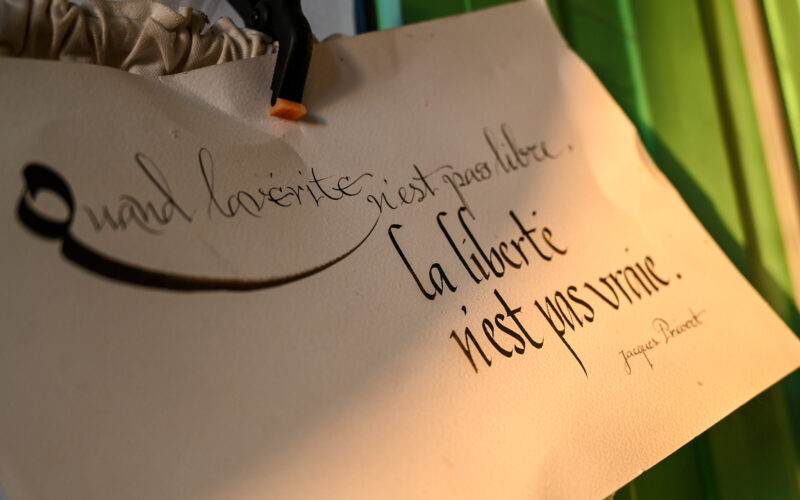 Quand la vérité n'est pas libre.
la liberté
n'est pas vraie.
Jacques Prévert